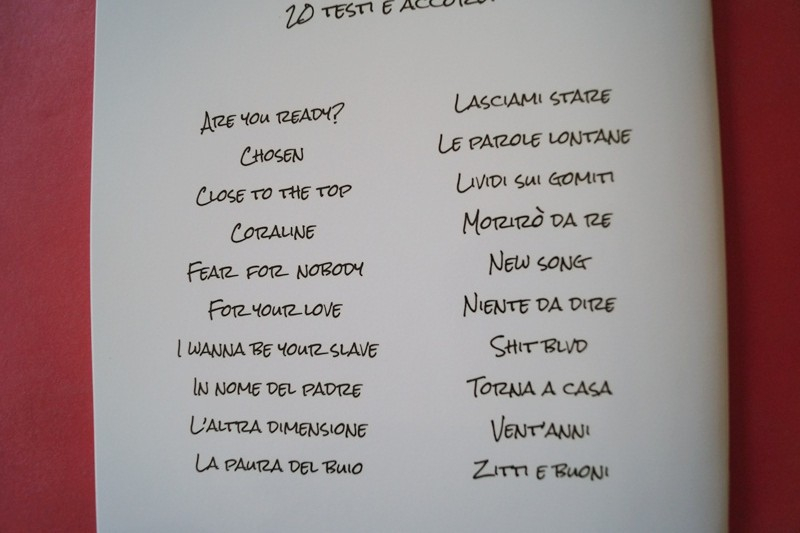 20 TESTI E ACCORDI
ARE YOU READY?
CHOSEN
CLOSE TO THE TOP
CORALINE
FEAR FOR NOBODY
FOR YOUR LOVE
I WANNA BE YOUR SLAVE
IN NOME DEL PADRE
L'ALTRA DIMENSIONE
LA PAURA DEL BUIO
LASCIAMI STARE
LE PAROLE LONTANE
LIVIDI SUI GOMITI
MORIRÒ DA RE
NEW SONG
NIENTE DA DIRE
SHIT BLVD
TORNA A CASA
VENT'ANNI
ZITTI E BUONI